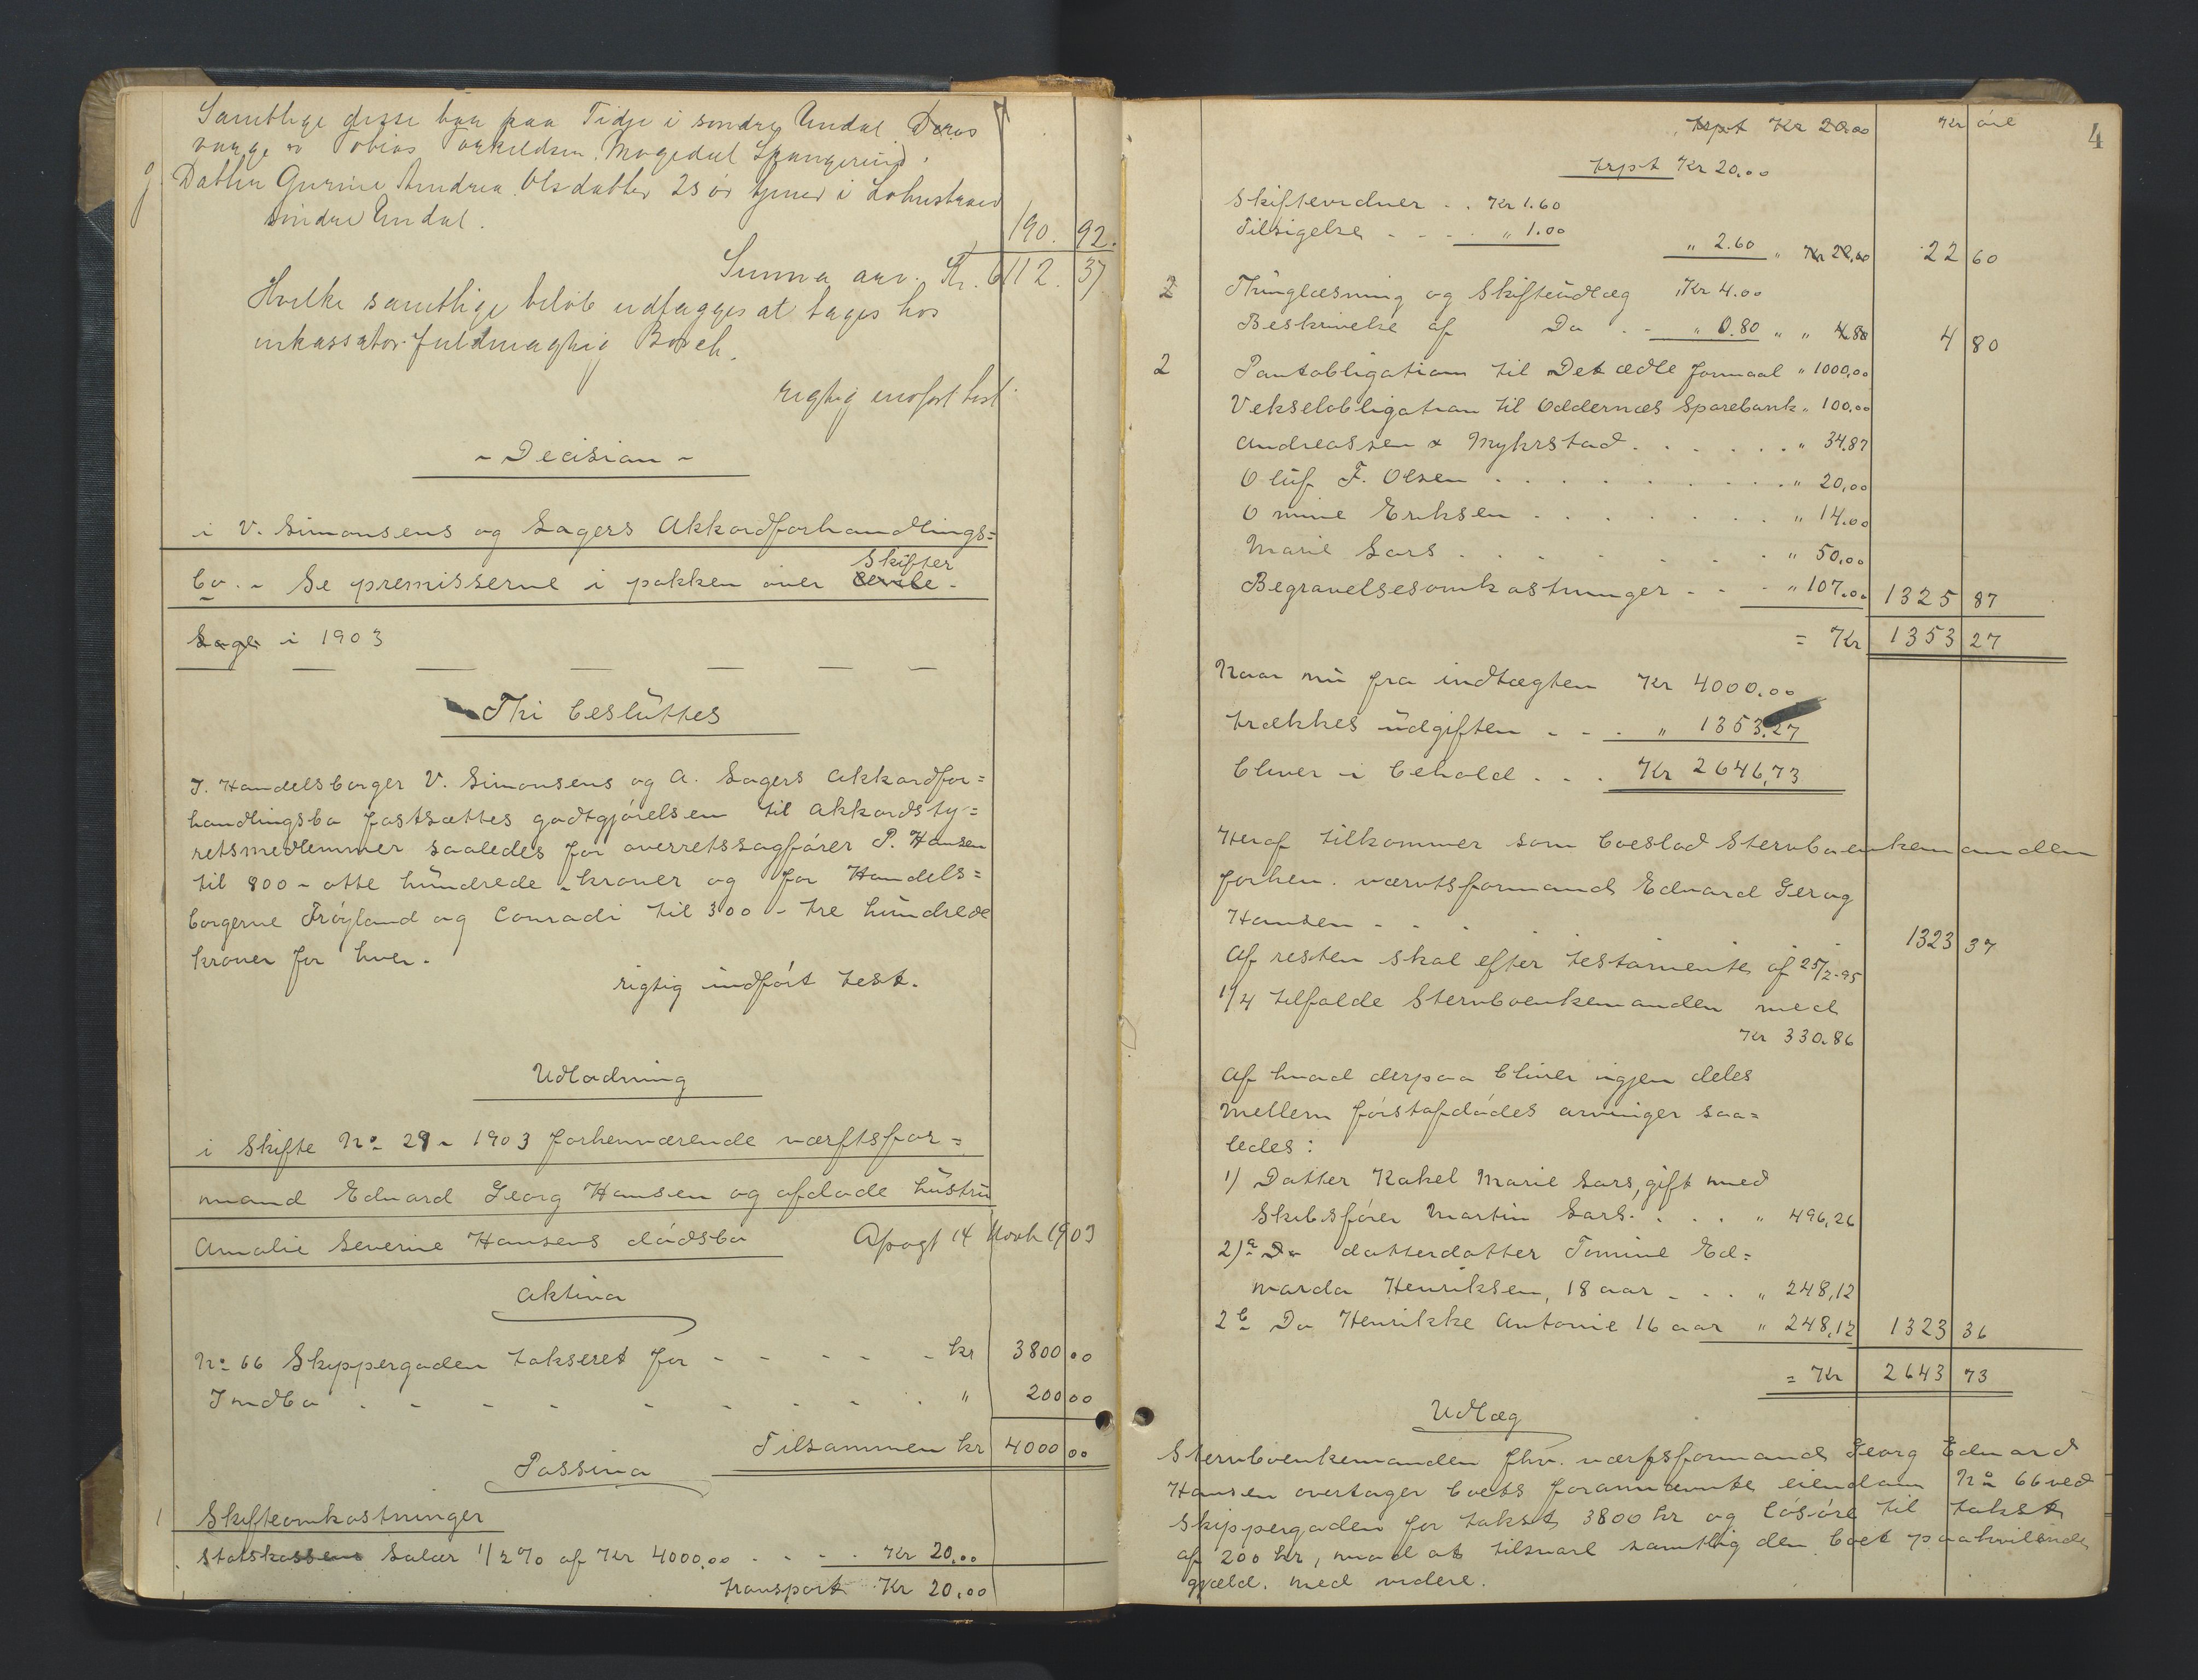 Samtlige disse bor paa Tidje i søndre Undal Deres
værge er Tobias Torkildsen
g Datter Gurine Andrea Olsdatter 25 år tjener i
søndre Undal. 190. 92.
Summa arv. Kr. 6112. 37
Hvilke samtlige beløb udlægges at tages hos
inkassator fuldmægtig Borch.
rigtig indført test.
- Decision -
i V. Simonsens og Sagers Akkordforhandlings=
bo. - Se premisserne i pakken over Skifter
Sager i 1903
Thi besluttes
I. Handelsborger V. Simonsens og A. Sagers Akkordfor=
handlingsbo fastsættes godtgjørelsen til Akkordsty=
retsmedlemmer saaledes for overretssagfører P. Hansen
til 800 - otte hundrede - kroner og for Handels=
borgerne Frøyland og Conradi til 300 - tre hundrede
kroner for hver.
rigtig indført test.
Udlodning
i Skifte No 29 - 1903 forhenværende værftsfor=
mand Eduard Georg Hansen og afdøde hustru
Amalie Severine Hansens dødsbo Afsagt 14 Novb 1903
Aktiva
No 66 Skippergaden takseret for - - - - - kr 3800 00
Indbo - - - - - - - - - " 200 00
Tilsammen kr 4000 00
Passiva
1 Skifteomkostninger
Statskassens Salær 1/2 % af Kr 4000,00 - - - Kr 20,00
transport Kr 20,00
trpt Kr 20,00 Kr øre 4
trpt Kr 20,00
Skiftevidner . . Kr 1.60
Tilsigelse - - - " 1.00
" 2.60 " Kr 22,60 22 60
2 Thinglæsning og Skifteudlæg Kr 4.00
Beskrivelse af Do . - " 0.80 " " 4,80 4 80
2 Pantobligation til Det ædle formaal " 1000,00
Vekselobligation til Oddernæs Sparebank " 100,00
Andreassen & Myhrstad . . . . . . " 34.87
Oluf F. Olsen . . . . . . . . . " 20,00
Omine Eriksen . . . . . . . " 14.00
Marie Sars . . . . . . . " 50,00
Begravelsesomkostninger - - - " 107,00 1325 87
= Kr 1353 27
Naar nu fra indtægten Kr 4000,00
trækkes udgiften - - - " 1353,27
bliver i behold . . . Kr 2646,73
Heraf tilkommer som boeslod Stervboenkemanden
forhen. værvtsformand Eduard Georg
Hansen - - . . 1323 37
Af resten skal efter testamente af 25/2-95
1/4 tilfalde Stervboenkemanden med
Kr 330.86
Af hvad derpaa bliver igjen deles
mellem førstafdødes arvinger saa=
ledes:
1) Datter Rakel Marie Sars, gift med
Skibsfører Martin Sars. . . . " 496,26
2)a Do datterdatter Tomine Ed=
varda Henriksen, 18 aar - . . " 248,12
2b Do Henrikke Antonie 16 aar " 248,12 1323 36
= Kr 2643 73
Udlæg
Stervboenkemanden fhv. værfsformand Georg Eduard
Hansen overtager boets forannævnte eiendom No 66 ved
Skippergaden for takst 3800 kr og løsøre til takst
af 200 kr, mod at tilsvare samtlig den boet paahvilende
gjæld. med videre.